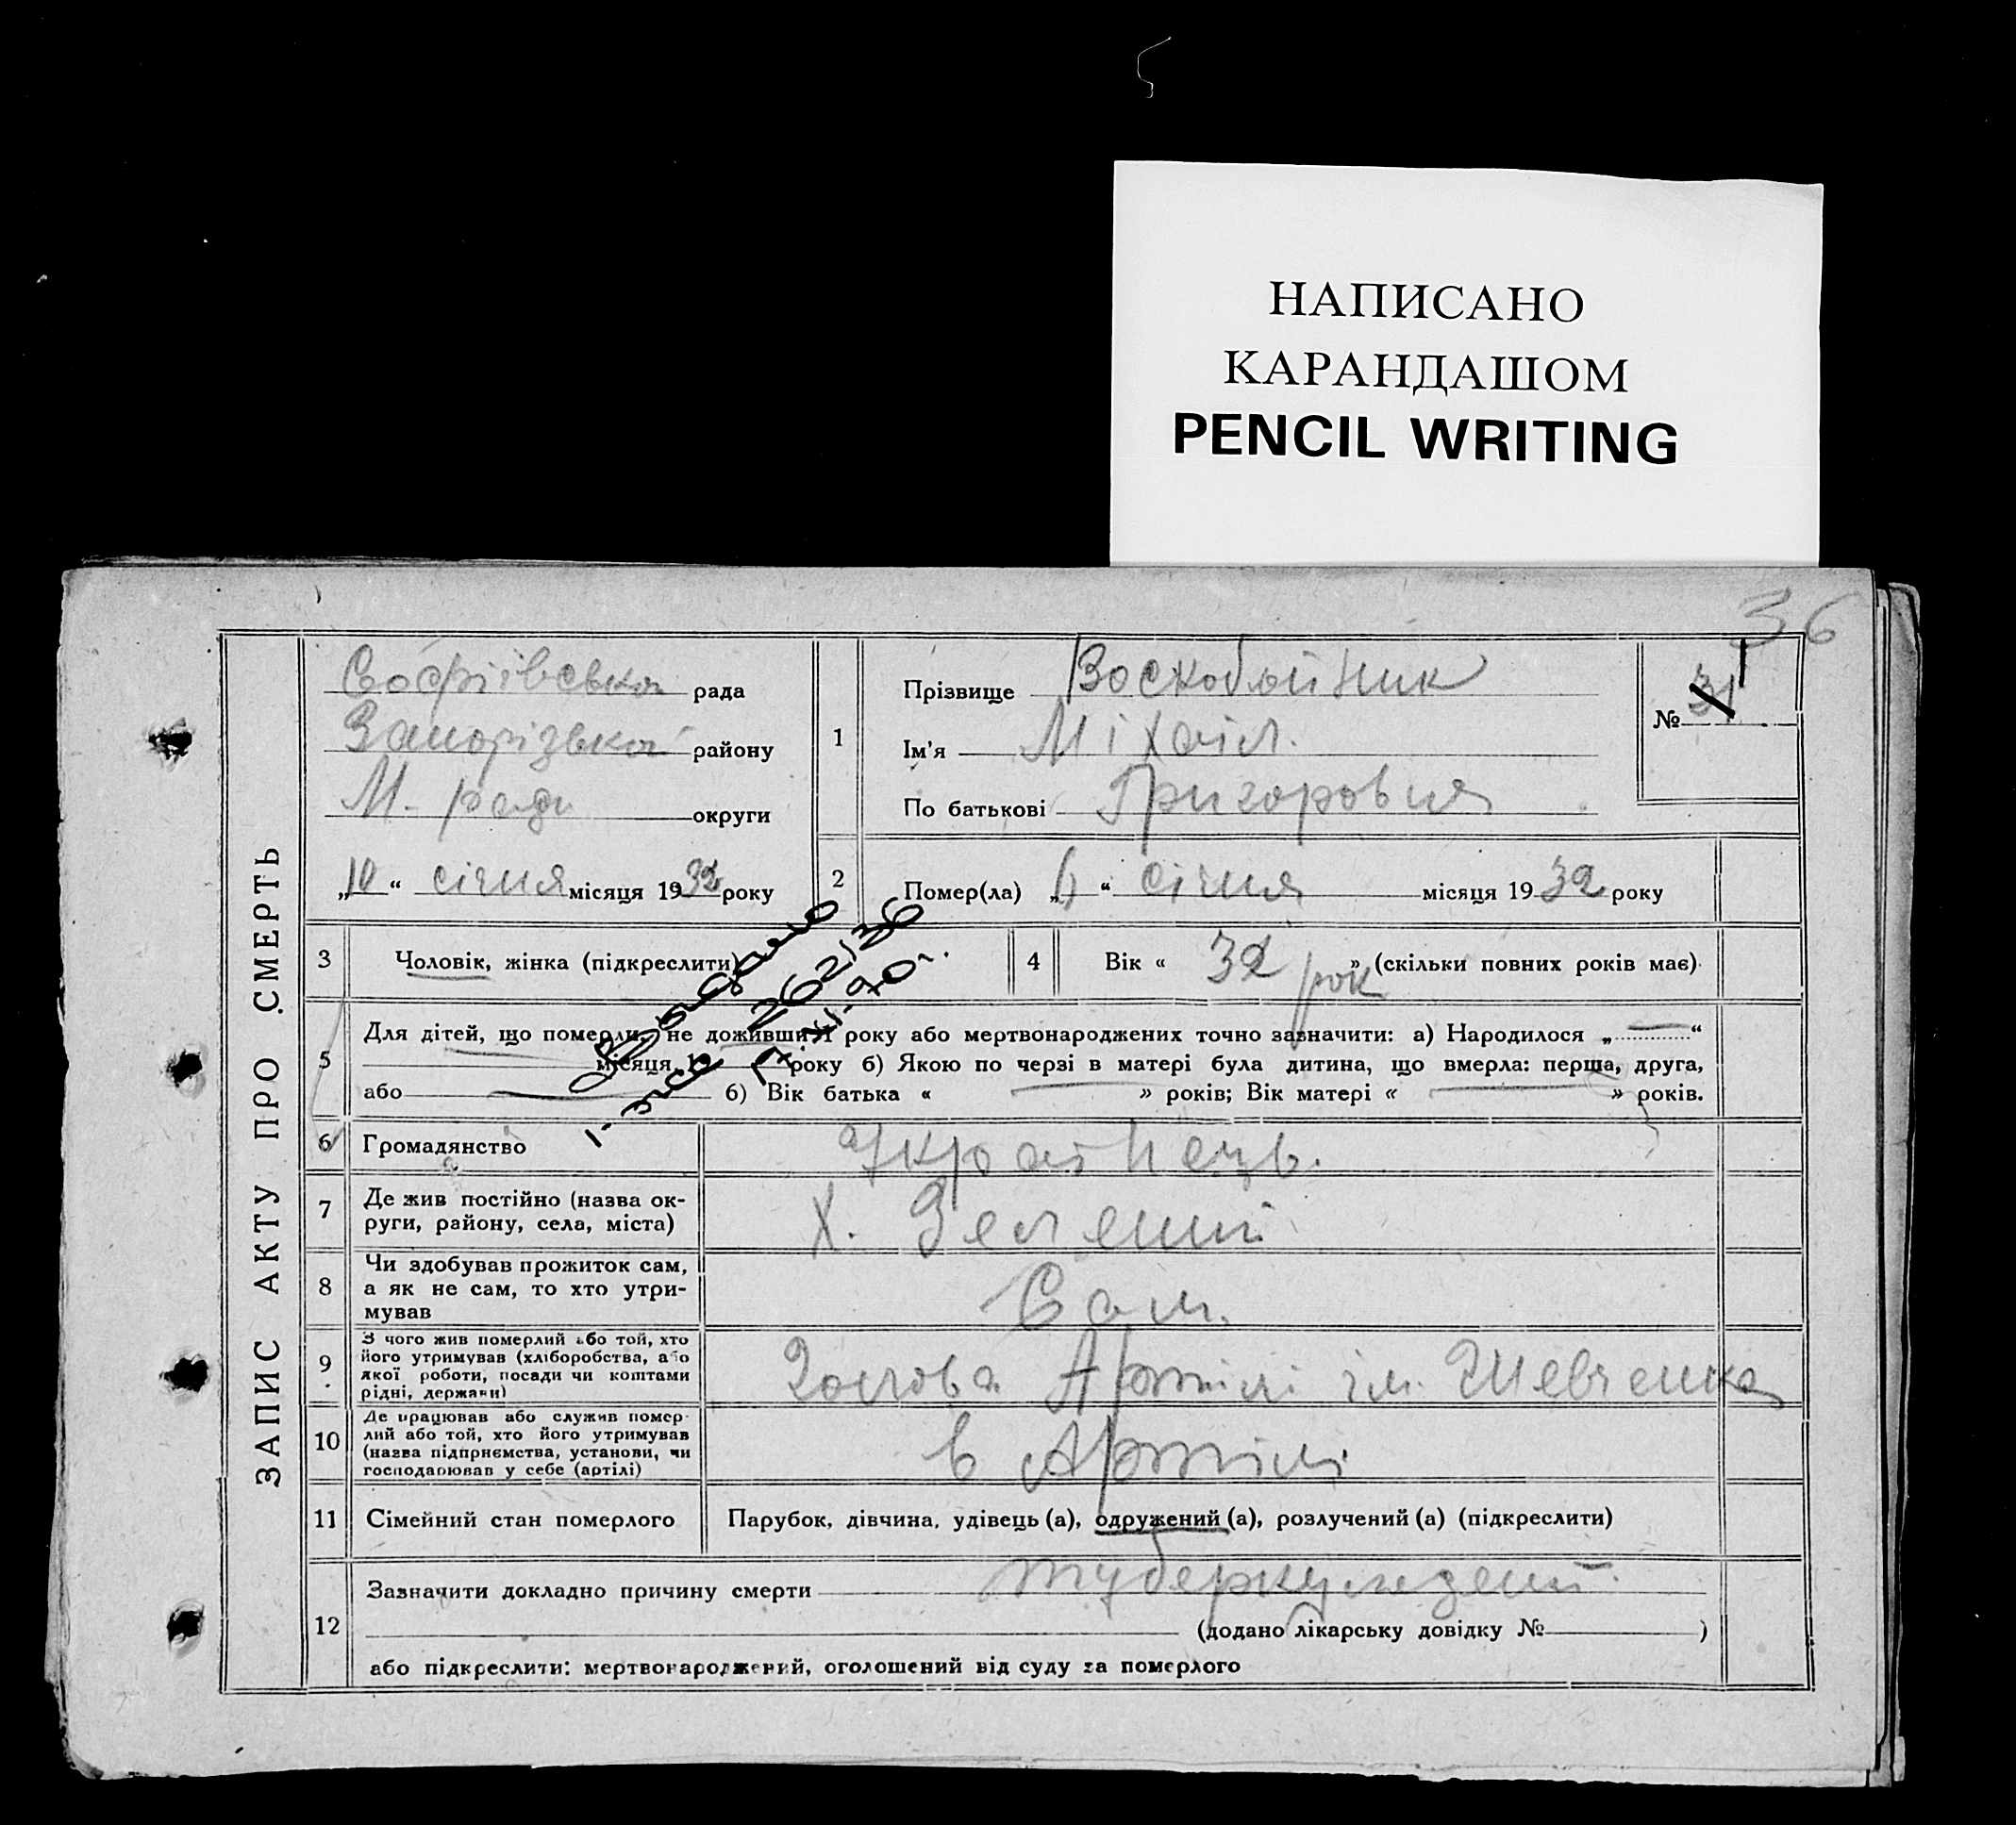 НАПИСАНО
КАРАНДАШОМ
PENCIL WRITING
36
ЗАПИС АКТУ ПРО СМЕРТЬ
Софіівська рада
Запорізька району
М. ради округи
„10“ січня місяця 1932 року
1
Прізвище Воскобойник
Ім'я Міхаіл.
По батькові Григоровия
№ 31 1
2
Помер(ла) „ “ січня місяця 1932 року
3
Чоловік, жінка (підкреслити)
4
Вік « 32 рок » (скільки повних років має)
262/36
5
Для дітей, що померли, не доживши 1 року або мертвонароджених точно зазначити: а) Народилося „ “
місяця 1 року б) Якою по черзі в матері була дитина, що вмерла: перша, друга,
або б) Вік батька « » років; Вік матері « » років.
6
Громадянство Украінець.
7
Де жив постійно (назва ок-
руги, району, села, міста)
Х. Зелений
8
Чи здобував прожиток сам,
а як не сам, то хто утри-
мував
Сам.
9
З чого жив померлий або той, хто
його утримував (хліборобства, або
якої роботи, посади чи коштами
рідні, держави)
Голова Артілі ім. Шевченка
10
Де працював або служив помер-
лий або той, хто його утримував
(назва підприємства, установи, чи
господарював у себе (артілі)
в Артілі
11
Сімейний стан померлого
Парубок, дівчина, удівець (а), одружений (а), розлучений (а) (підкреслити)
12
Зазначити докладно причину смерти
(додано лікарську довідку № )
або підкреслити: мертвонароджений, оголошений від суду за померлого